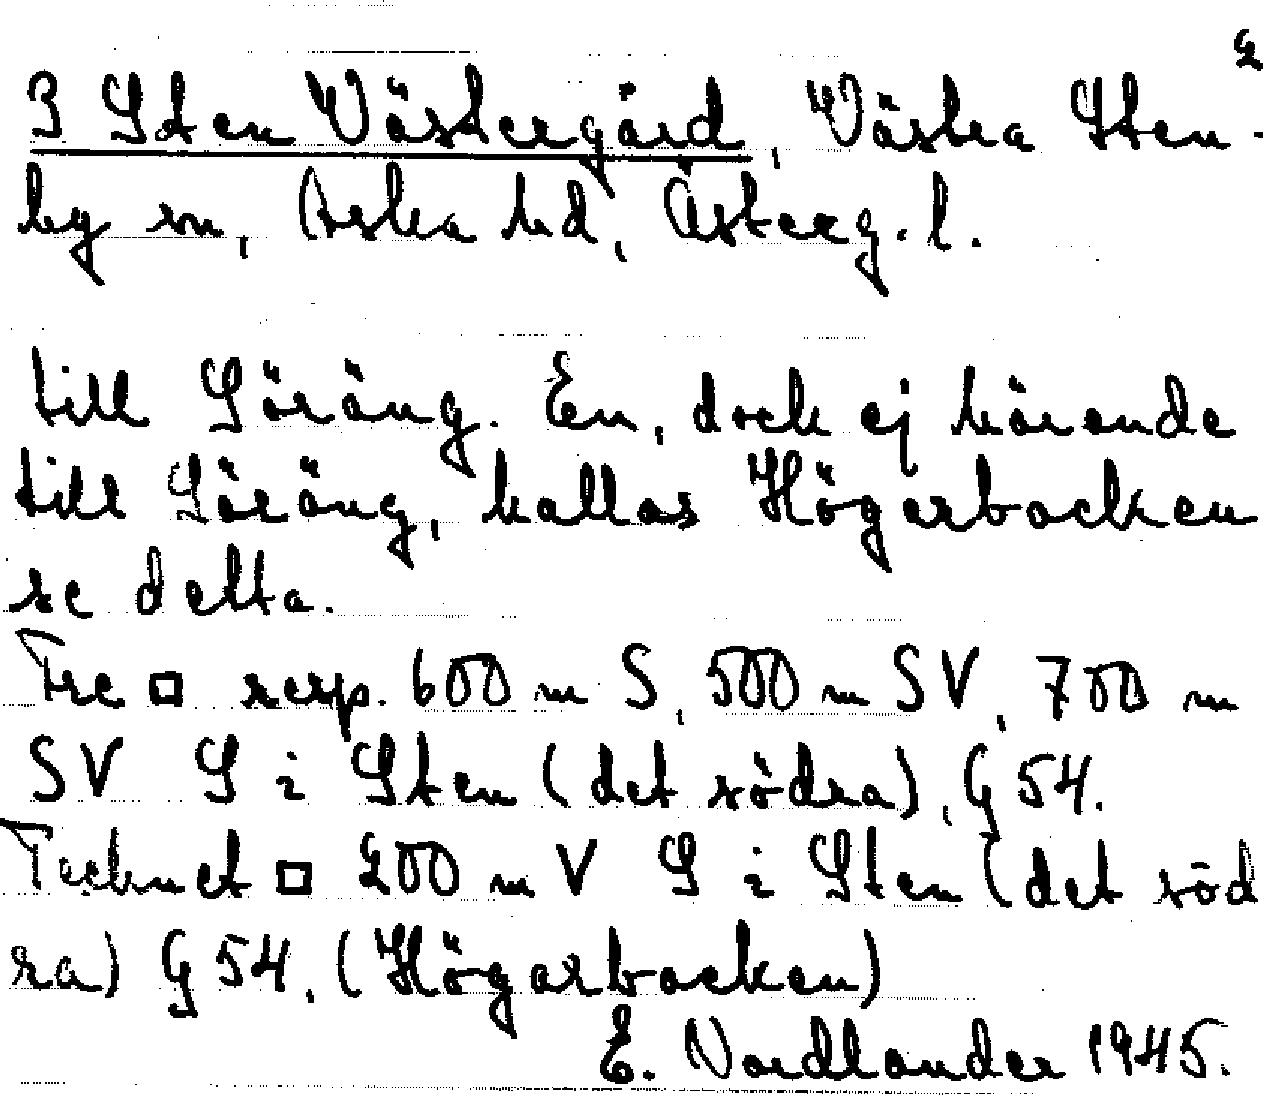 2
3 Sten Västergård, Västra Sten-
by sn, Aska hd, Österg. l.
till Söräng. En, dock ej hörande
till Söräng, kallas Högarbacken
se detta.
Tre □ resp. 600 m S, 500 m SV, 700 m
SV S i Sten (det södra), G 54.
Tecknet □ 200 m V S i Sten (det söd
ra) G 54. (Högarbacken)
E. Nordlander 1945.